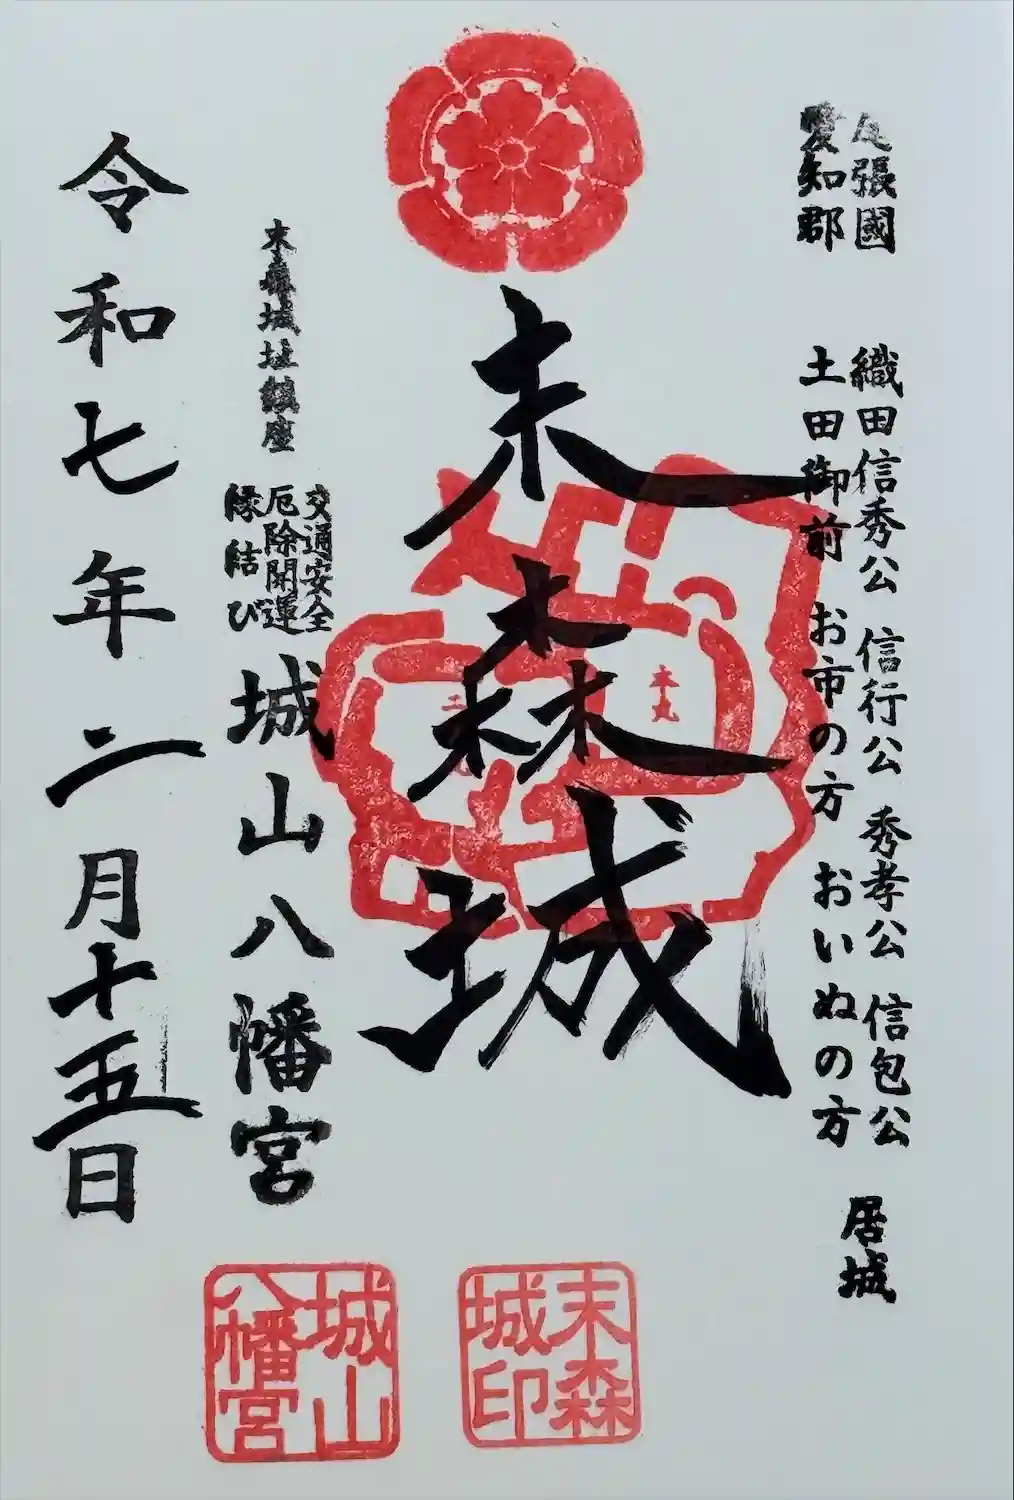 尾張國
愛知郡
織田信秀公 信行公 秀孝公 信包公
土田御前 お市の方 おいぬの方
居城
末森城
本丸
末森城址鎮座
交通安全
厄除開運
縁結び
城山八幡宮
令和七年二月十五日
末森
城印
城山
八幡宮